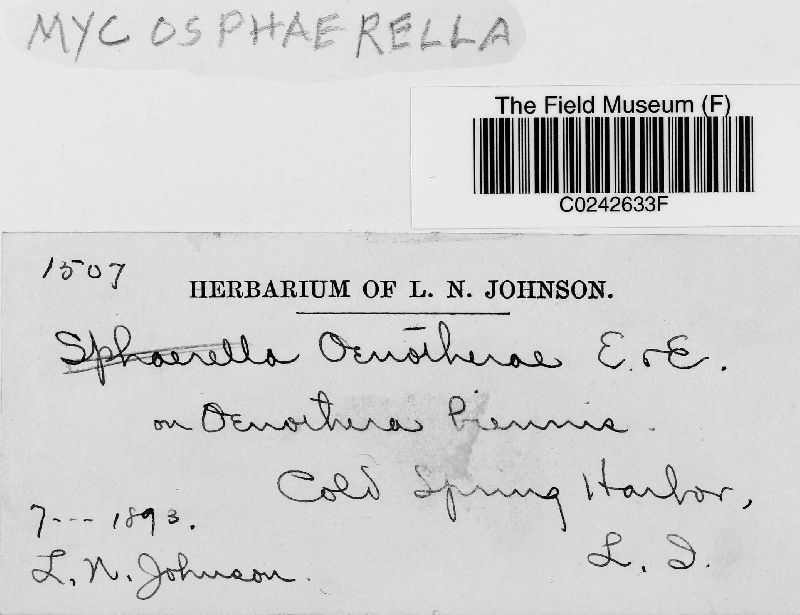 MYCOSPHAERELLA
The Field Museum (F)
C0242633F
1507
HERBARIUM OF L. N. JOHNSON.
Sphaerella Oenotherae E. & E.
on Oenothera biennis.
Cold Spring Harbor,
L. I.
7--- 1893.
L. N. Johnson.